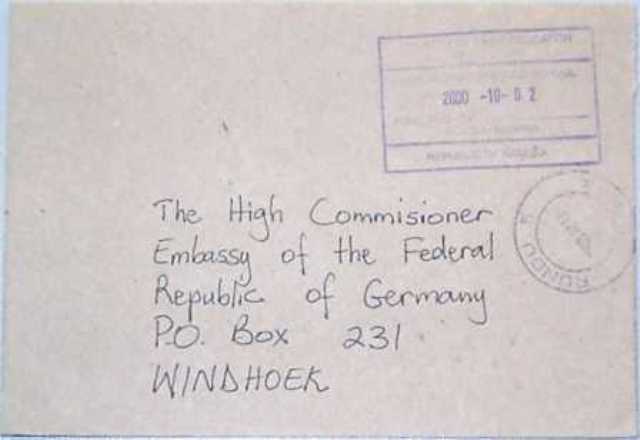 2000 -10- 0 2
RUNDU
The High Commisioner
Embassy of the Federal
Republic of Germany
P.O. Box 231
WINDHOEK